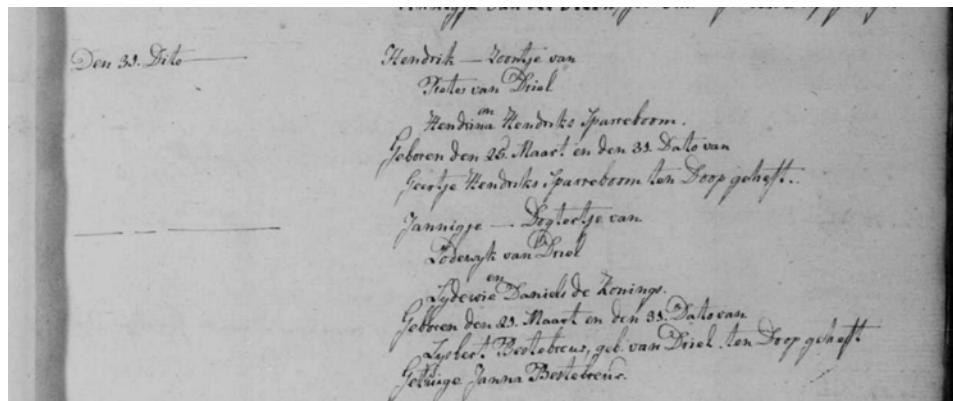 Den 31. Dito
Hendrik — Zoontje van
Pieter van Driel
en
Hendrina Hendriks Sparreboom.
Geboren den 26. Maart en den 31. Dato van
Geertje Hendriks Sparreboom ten Doop geheft.
Jannigje — Dogtertje van
Lodewyk van Driel
en
Lydewie Daniels de Konings.
Geboren den 21. Maart en den 31. Dato van
Lysbert Bestebreur, geb. van Driel ten Doop geheft
Getuige Janna Bestebreur.